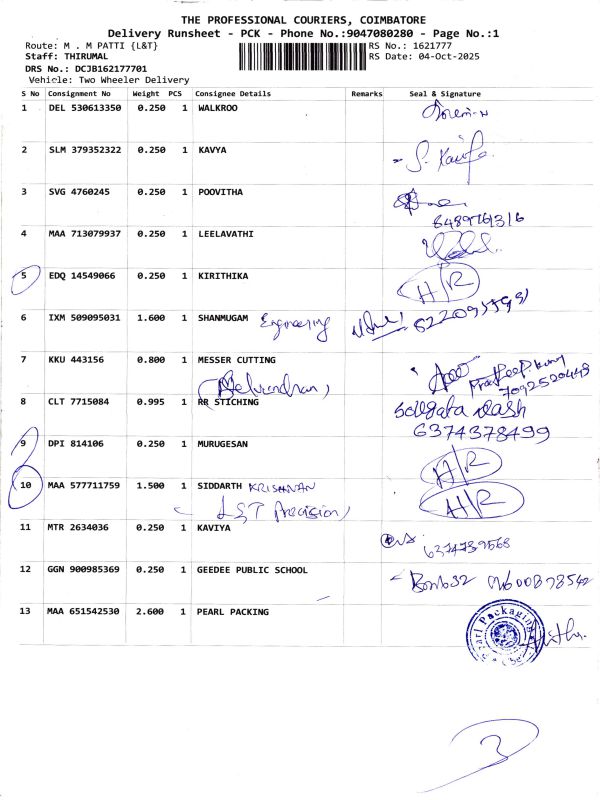 THE PROFESSIONAL COURIERS, COIMBATORE
Delivery Runsheet - PCK - Phone No.:9047080280 - Page No.:1
Route: M . M PATTI {L&T} RS No.: 1621777
Staff: THIRUMAL RS Date: 04-Oct-2025
DRS No.: DCJB162177701
Vehicle: Two Wheeler Delivery
S No Consignment No Weight PCS Consignee Details Remarks Seal & Signature
1 DEL 530613350 0.250 1 WALKROO
2 SLM 379352322 0.250 1 KAVYA
3 SVG 4760245 0.250 1 POOVITHA
4 MAA 713079937 0.250 1 LEELAVATHI
5 EDQ 14549066 0.250 1 KIRITHIKA H/R
6 IXM 509095031 1.600 1 SHANMUGAM Engineering
7 KKU 443156 0.800 1 MESSER CUTTING Pradeepkumar 7092520448
8 CLT 7715084 0.995 1 RR STICHING 6374378499
9 DPI 814106 0.250 1 MURUGESAN H/R
10 MAA 577711759 1.500 1 SIDDARTH KRISHNAN H/R
Precision)
11 MTR 2634036 0.250 1 KAVIYA
12 GGN 900985369 0.250 1 GEEDEE PUBLIC SCHOOL
13 MAA 651542530 2.600 1 PEARL PACKING
Pearl Packaging
3